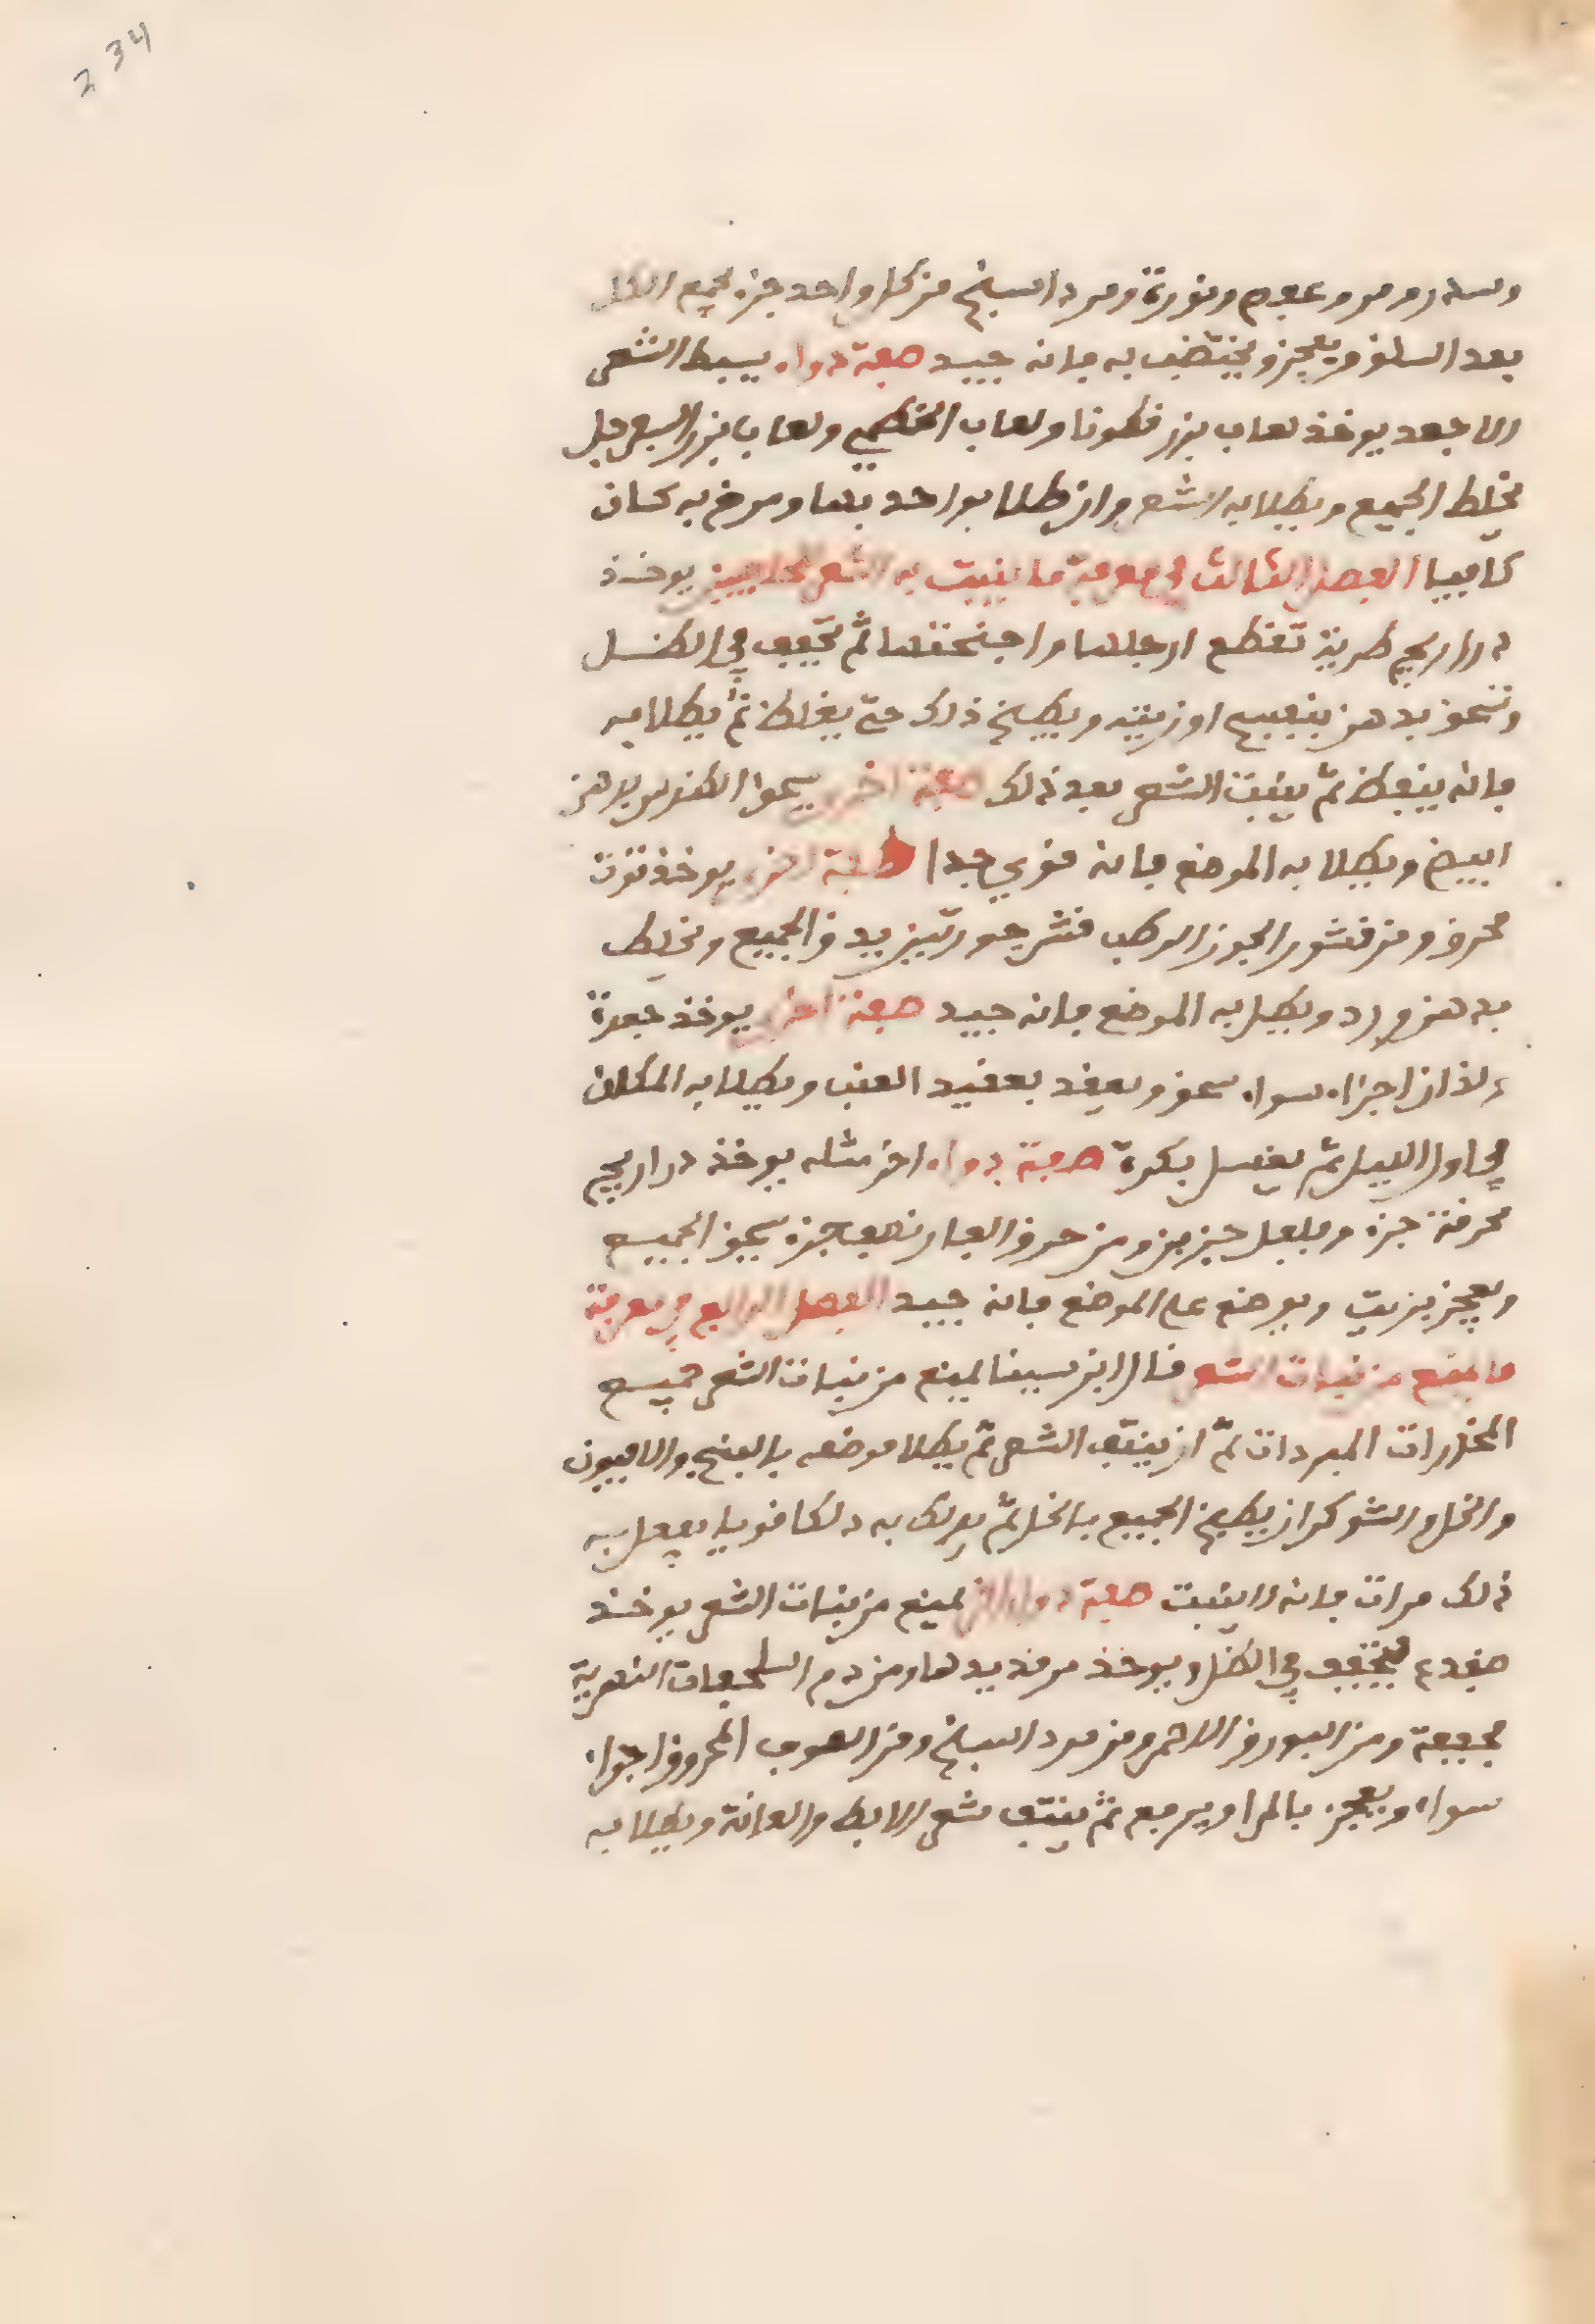 234
وسدر ومر وعفص ونورة ومرداسنج من كل واحد جزء يجمع الكل
بعد السحق ويعجن ويختضب به فانه جيد صفة دواء يسبط الشعر
الاجعد يوخذ لعاب بزر قطونا ولعاب الخطمي ولعاب بزر السفرجل
يخلط الجميع ويطلا به الشعر وان طلا بواحد بها ومرخ به كان
كافيا الفصل الثالث في معرفة ما ينبت به الشعر يوخذ
دراريج طرية تقطع ارجلها واجنحتها ثم تجفف في الظل
وتسحق بدهن بنفسج او زيت ويطبخ ذلك حتى يغلظ ثم يطلا به
فانه ينفط ثم ينبت الشعر بعد ذلك صفة اخرى يسحق الكندس بدهن
ابيض ويطلا به الموضع فانه قوي جدا صفة اخرى يوخذ
محرق ومن قشور الجوز الرطب قشر جوزتين يدق الجميع ويخلط
بدهن ورد ويطلى به الموضع فانه جيد صفة اخرى يوخذ
ولاذن اجزاء سواء يسحق ويعقد بعقيد العنب ويطلا به المكان
في اول الليل ثم يغسل بكرة صفة دواء اخر مثله يوخذ دراريج
محرقة جزء وفلفل جزءين ومن خرو الفار نصف جزء يسحق الجميع
ويعجن بزيت ويوضع على الموضع فانه جيد الفصل الرابع في معرفة
ما يمنع من نبات الشعر قال ابن سينا يمنع من نبات الشعر جميع
المخدرات المبردات ثم ان ينتف الشعر ثم يطلا موضعه بالبنج والافيون
والخل والشوكران يطبخ الجميع بالخل ثم يدلك به دلكا قويا يفعل به
ذلك مرات فانه لا ينبت صفة دواء اخر يمنع من نبات الشعر يوخذ
ضفدع فيجفف في الظل ويوخذ من قديدها ومن دم السلحفات النهرية
مجففة ومن البورق الاحمر ومن مرداسنج ومن الصدف المحروق اجزاء
سواء ويعجن بالمرا ويرفع ثم ينتف شعر الابط والعانة ويطلا به